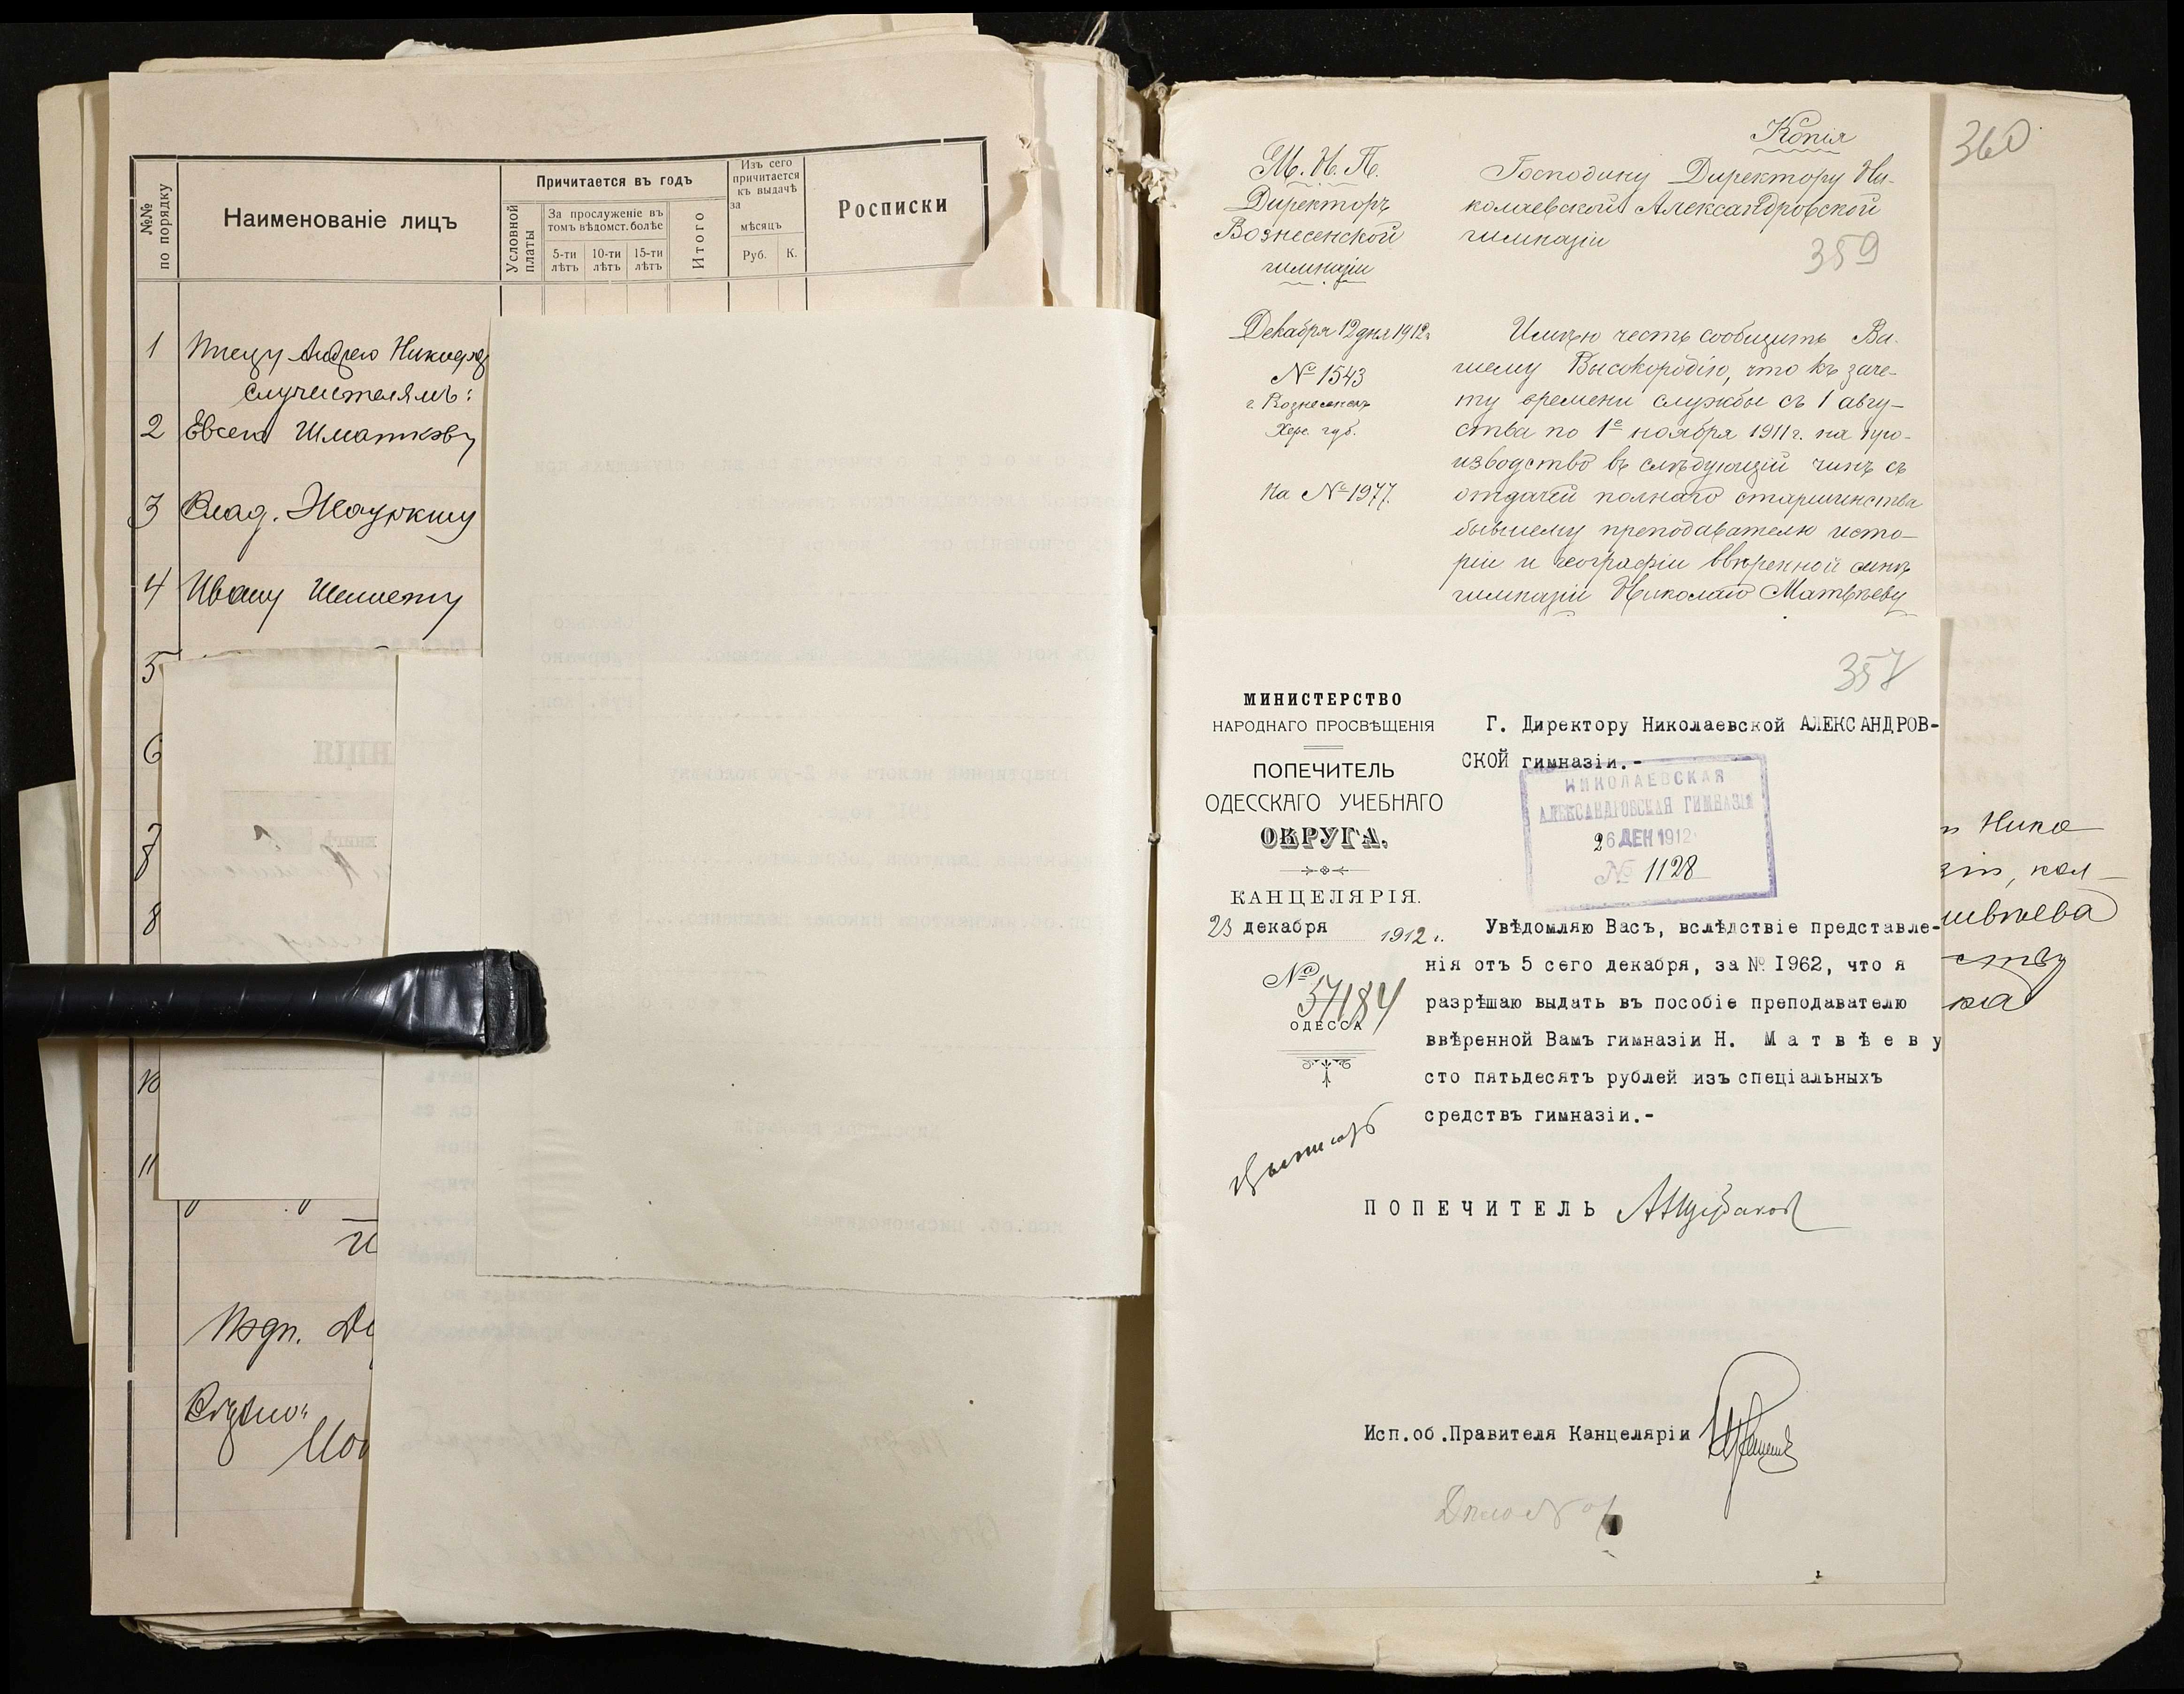 №№ по порядку
Наименованіе лицъ
Причитается въ годъ
Условной платы
За прослуженіе въ
томъ вѣдомст. болѣе
5-ти лѣтъ
10-ти лѣтъ
15-ти лѣтъ
Итого
Изъ сего
причитается
къ выдачѣ
за
мѣсяцъ
Руб.
К.
Росписки
1
Андрею
служителямъ:
2 Евсею Шматкову
3 Влад.
4 Ивану
5
6
7
8
10
11
Копія
360
М. Н. П.
Директоръ
Вознесенской
гимназіи
Декабря 12 дня 1912 г.
№ 1543
г. Вознесенскъ
Херс. губ.
На № 1977.
Господину Директору Ни-
колаевской Александровской
гимназіи
359
Имѣю честь сообщить Ва-
шему Высокородію, что къ заче-
ту времени службы съ 1 авгу-
ста по 1е ноября 1911 г. на про-
изводство въ слѣдующій чинъ съ
отдачей полнаго старшинства
бывшему преподавателю исто-
ріи и географіи ввѣренной мнѣ
гимназіи Николаю Матвѣеву
357
МИНИСТЕРСТВО
НАРОДНАГО ПРОСВѢЩЕНІЯ
ПОПЕЧИТЕЛЬ
ОДЕССКАГО УЧЕБНАГО
ОКРУГА.
КАНЦЕЛЯРІЯ.
23 декабря 1912 г.
№ 57184
ОДЕССА
Г. Директору Николаевской АЛЕКСАНДРОВ-
СКОЙ гимназіи.-
НИКОЛАЕВСКАЯ
АЛЕКСАНДРОВСКАЯ ГИМНАЗІЯ
26 ДЕК 1912
№ 1128
Увѣдомляю Васъ, вслѣдствіе представле-
нія отъ 5 сего декабря, за № I962, что я
разрѣшаю выдать въ пособіе преподавателю
ввѣренной Вамъ гимназіи Н. Матвѣеву
сто пятьдесятъ рублей изъ спеціальныхъ
средствъ гимназіи.-
ПОПЕЧИТЕЛЬ
Исп.об.Правителя Канцеляріи
Дѣло №